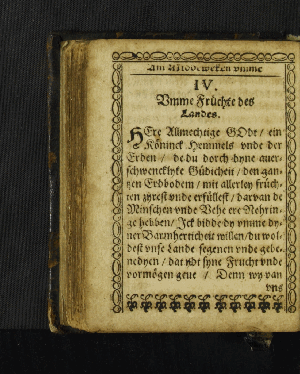 Am Midweken vmme
IV.
Vmme Früchte des
Landes.
HEre Allmechtige GOdt / ein
Köninck Hemmels vnde der
Erden / de du dorch dyne auer-
schwencklyke Güdicheit / den gan-
tzen Erdbodem / mit allerley früch-
ten zyrest vnde erfüllest / darvan de
Minschen vnde Vehe ere Nehrin-
ge hebben / Jck bidde dy vmme dy-
ner Barmherticheit willen / du wol-
dest vnse Lande segenen vnde gebe-
nedyen / dat ydt syne Frucht vnde
vormögen geue / Denn wy van
vns